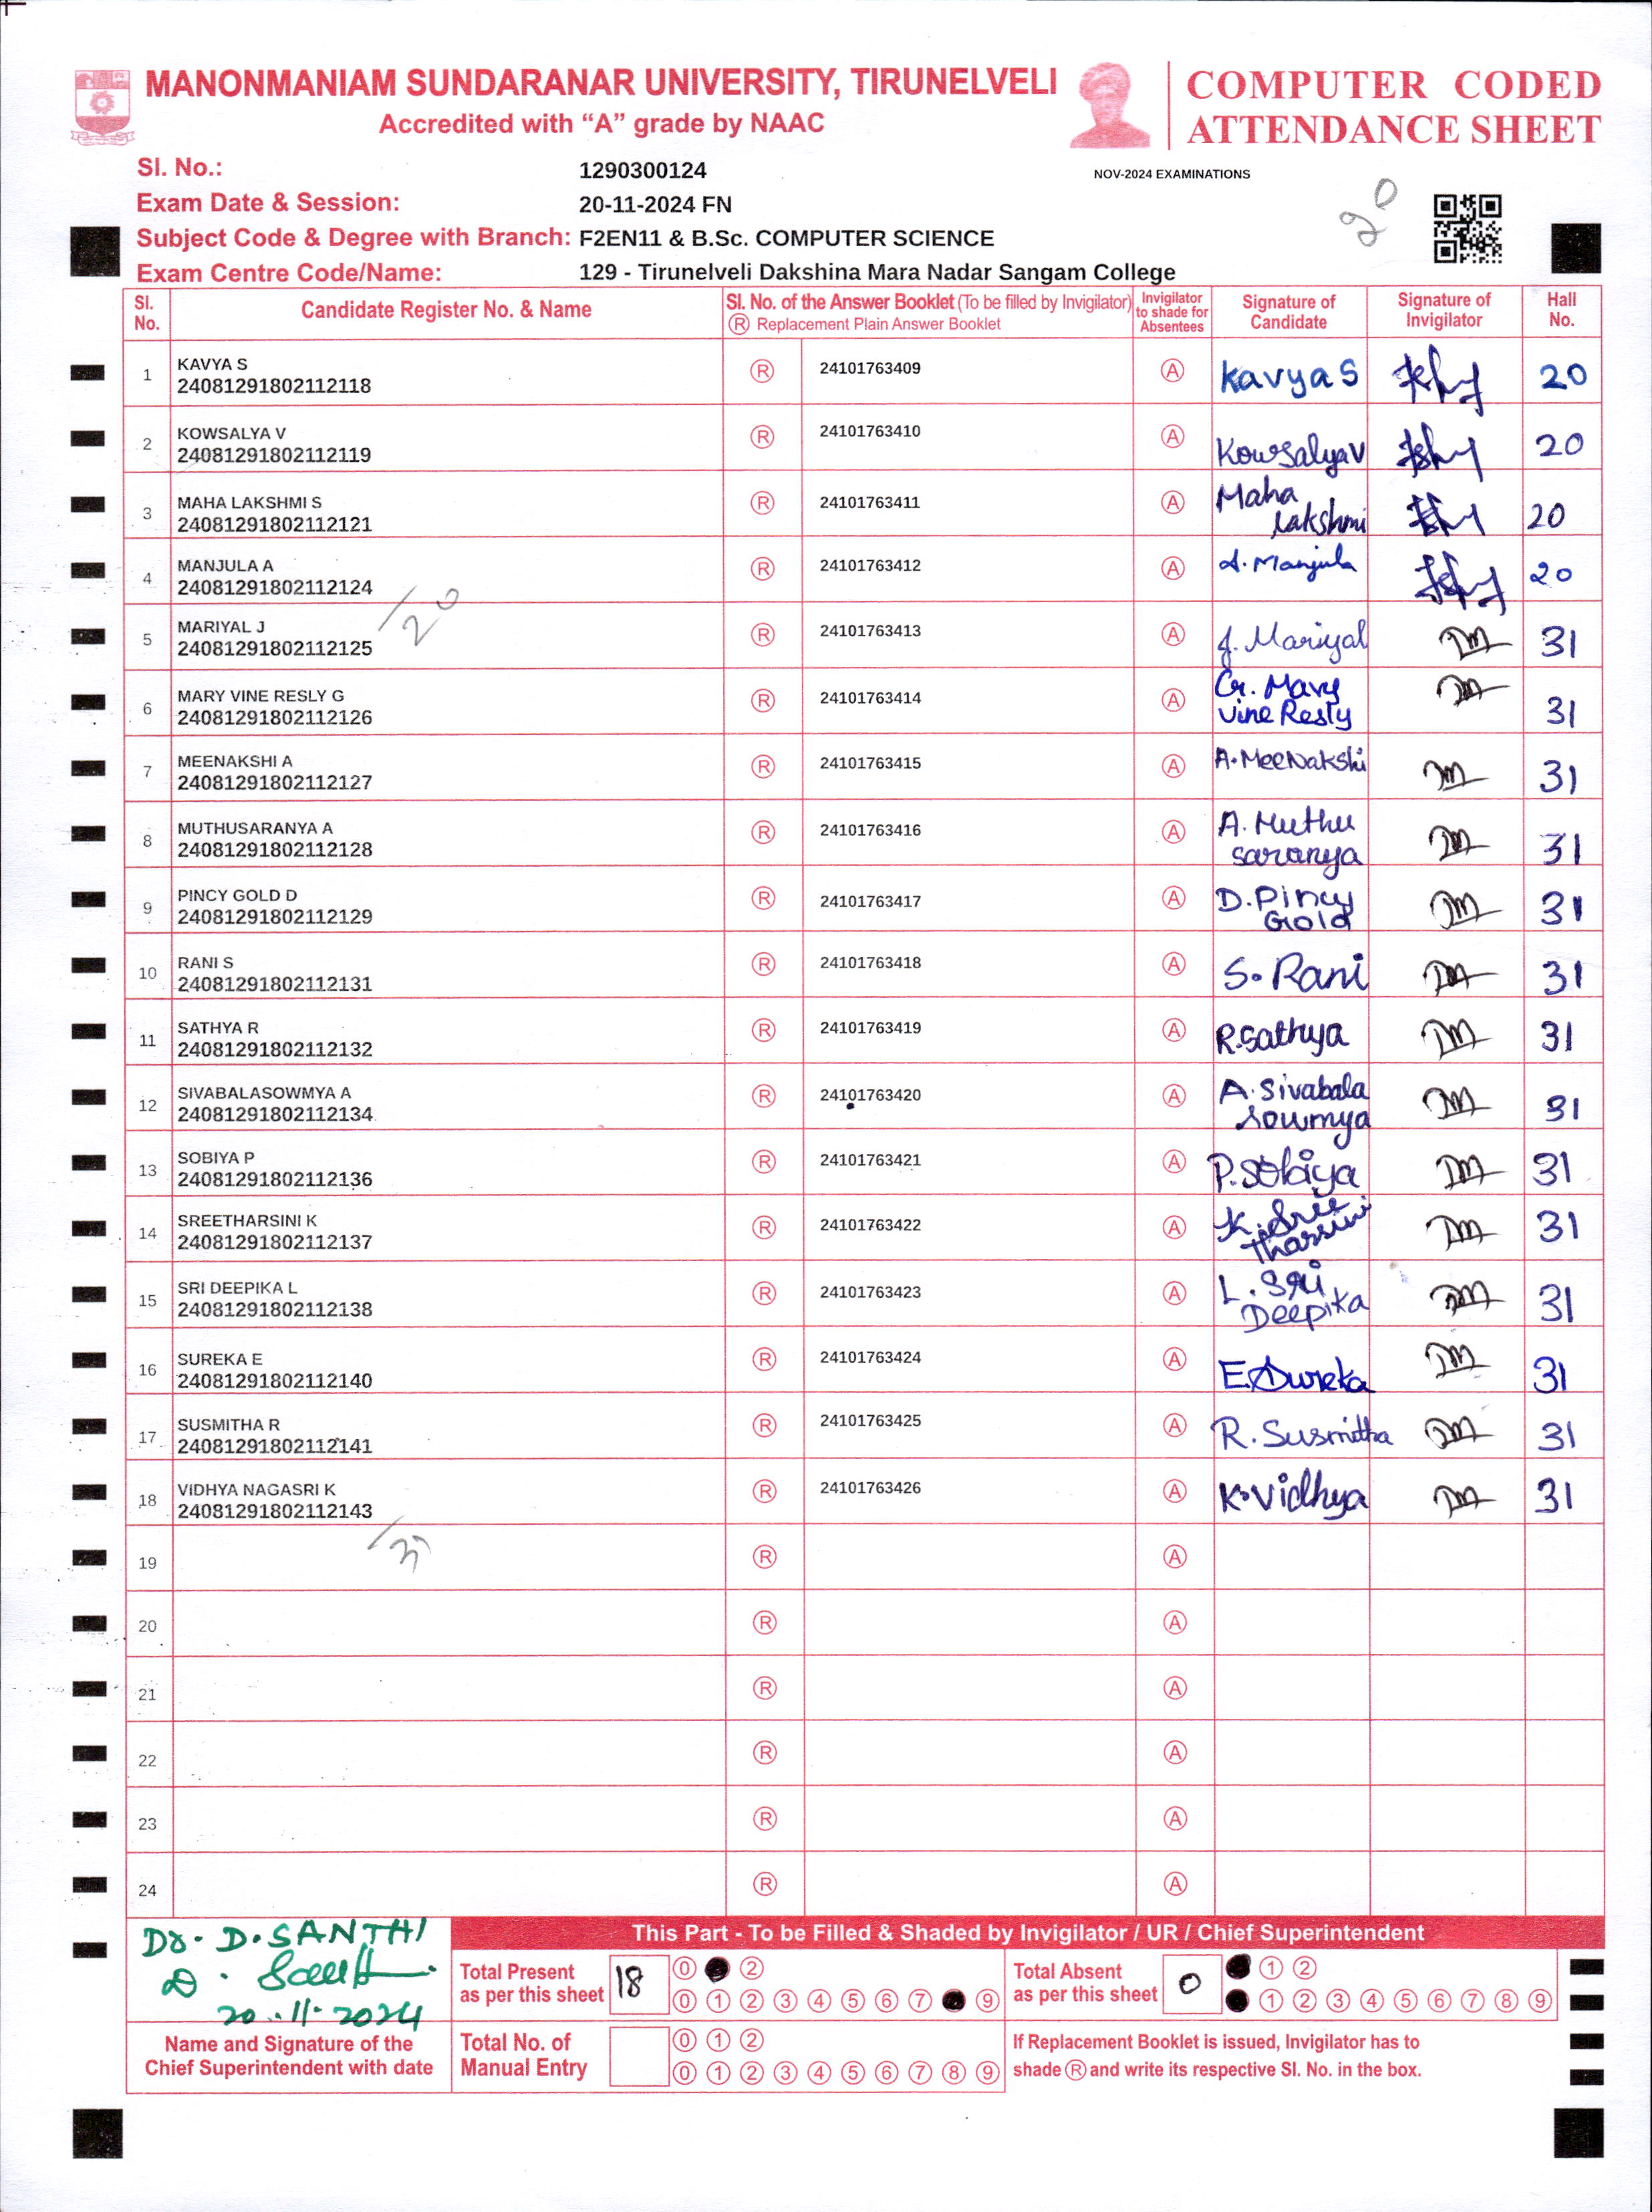 MANONMANIAM SUNDARANAR UNIVERSITY, TIRUNELVELI
Accredited with “A” grade by NAAC
COMPUTER CODED
ATTENDANCE SHEET
Sl. No.: 1290300124
NOV-2024 EXAMINATIONS
Exam Date & Session: 20-11-2024 FN
20
Subject Code & Degree with Branch: F2EN11 & B.Sc. COMPUTER SCIENCE
Exam Centre Code/Name: 129 - Tirunelveli Dakshina Mara Nadar Sangam College
Sl. No. Candidate Register No. & Name Sl. No. of the Answer Booklet (To be filled by Invigilator) Ⓡ Replacement Plain Answer Booklet Invigilator to shade for Absentees Signature of Candidate Signature of Invigilator Hall No.
1 KAVYA S Ⓡ 24101763409 Ⓐ Kavya S 20
24081291802112118
2 KOWSALYA V Ⓡ 24101763410 Ⓐ Kowsalya V 20
24081291802112119
3 MAHA LAKSHMI S Ⓡ 24101763411 Ⓐ Maha Lakshmi 20
24081291802112121
4 MANJULA A Ⓡ 24101763412 Ⓐ A. Manjula 20
24081291802112124
/20
5 MARIYAL J Ⓡ 24101763413 Ⓐ J. Mariyal 31
24081291802112125
6 MARY VINE RESLY G Ⓡ 24101763414 Ⓐ G. Mary Vine Resly 31
24081291802112126
7 MEENAKSHI A Ⓡ 24101763415 Ⓐ A. MeeNakshi 31
24081291802112127
8 MUTHUSARANYA A Ⓡ 24101763416 Ⓐ A. Muthu saranya 31
24081291802112128
9 PINCY GOLD D Ⓡ 24101763417 Ⓐ D. Pincy Gold 31
24081291802112129
10 RANI S Ⓡ 24101763418 Ⓐ S. Rani 31
24081291802112131
11 SATHYA R Ⓡ 24101763419 Ⓐ R. Sathya 31
24081291802112132
12 SIVABALASOWMYA A Ⓡ 24101763420 Ⓐ A. Sivabala sowmya 31
24081291802112134
13 SOBIYA P Ⓡ 24101763421 Ⓐ P. Sobiya 31
24081291802112136
14 SREETHARSINI K Ⓡ 24101763422 Ⓐ K. Sree tharsini 31
24081291802112137
15 SRI DEEPIKA L Ⓡ 24101763423 Ⓐ L. Sri Deepika 31
24081291802112138
16 SUREKA E Ⓡ 24101763424 Ⓐ E. Sureka 31
24081291802112140
17 SUSMITHA R Ⓡ 24101763425 Ⓐ R. Susmitha 31
24081291802112141
18 VIDHYA NAGASRI K Ⓡ 24101763426 Ⓐ K. Vidhya 31
24081291802112143
/31
19 Ⓡ Ⓐ
20 Ⓡ Ⓐ
21 Ⓡ Ⓐ
22 Ⓡ Ⓐ
23 Ⓡ Ⓐ
24 Ⓡ Ⓐ
Dr. D. SANTHI
20.11.2024
Name and Signature of the
Chief Superintendent with date
This Part - To be Filled & Shaded by Invigilator / UR / Chief Superintendent
Total Present as per this sheet 18
0 2
0 1 2 3 4 5 6 7 9
Total Absent as per this sheet 0
1 2
1 2 3 4 5 6 7 8 9
Total No. of Manual Entry
0 1 2
0 1 2 3 4 5 6 7 8 9
If Replacement Booklet is issued, Invigilator has to
shade Ⓡ and write its respective Sl. No. in the box.